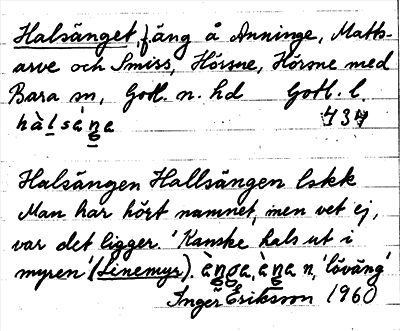 Halsänget, f. äng å Anninge, Matts-
arve och Smiss, Hörsne, Hörsne med
Bara sn, Gotl. n. hd Gotl. l.
hàlsáŋa 434
Halsängen Hallsängen lskk
Man har hört namnet, men vet ej,
var det ligger. 'Kanske hals ut i
myren' (Linemyr). n, 'löväng'
Inger Eriksson 1960